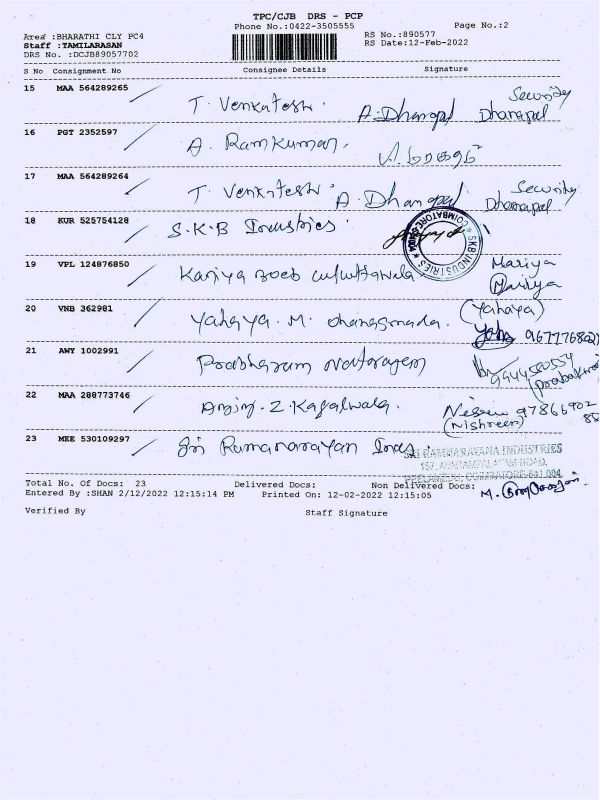 TPC/CJB DRS - PCP
Phone No.:0422-3505555
Page No.:2
Area :BHARATHI CLY PC4
RS No.:890577
Staff :TAMILARASAN
RS Date:12-Feb-2022
DRS No. :DCJB89057702
S No Consignment No Consignee Details Signature
15 MAA 564289265
T. Venkatesh. A. Dhanapal Security Dhanapal
16 PGT 2352597
A. Ramkumar.
17 MAA 564289264
T. Venkatesh. A Dhanapal Security Dhanapal
18 KUR 525754128
S.K.B Industries. SKB INDUSTRIES COIMBATORE
19 VPL 124876850
Mariya
Kariya Mariya
20 VNB 362981
(Yahaya)
Yahaya. M.
21 AWY 1002991
Prabharam 9944580554
22 MAA 288773746
Z. Kagalwala. 97866902
(Nishreen) 85
23 MEE 530109297
Sri Ramanarayan Inds.
SRI RAMNARAYANA INDUSTRIES
157, ROAD,
PEELAMEDU, COIMBATORE-641 004
Total No. Of Docs: 23 Delivered Docs: Non Delivered Docs:
Entered By :SHAN 2/12/2022 12:15:14 PM Printed On: 12-02-2022 12:15:05
Verified By Staff Signature